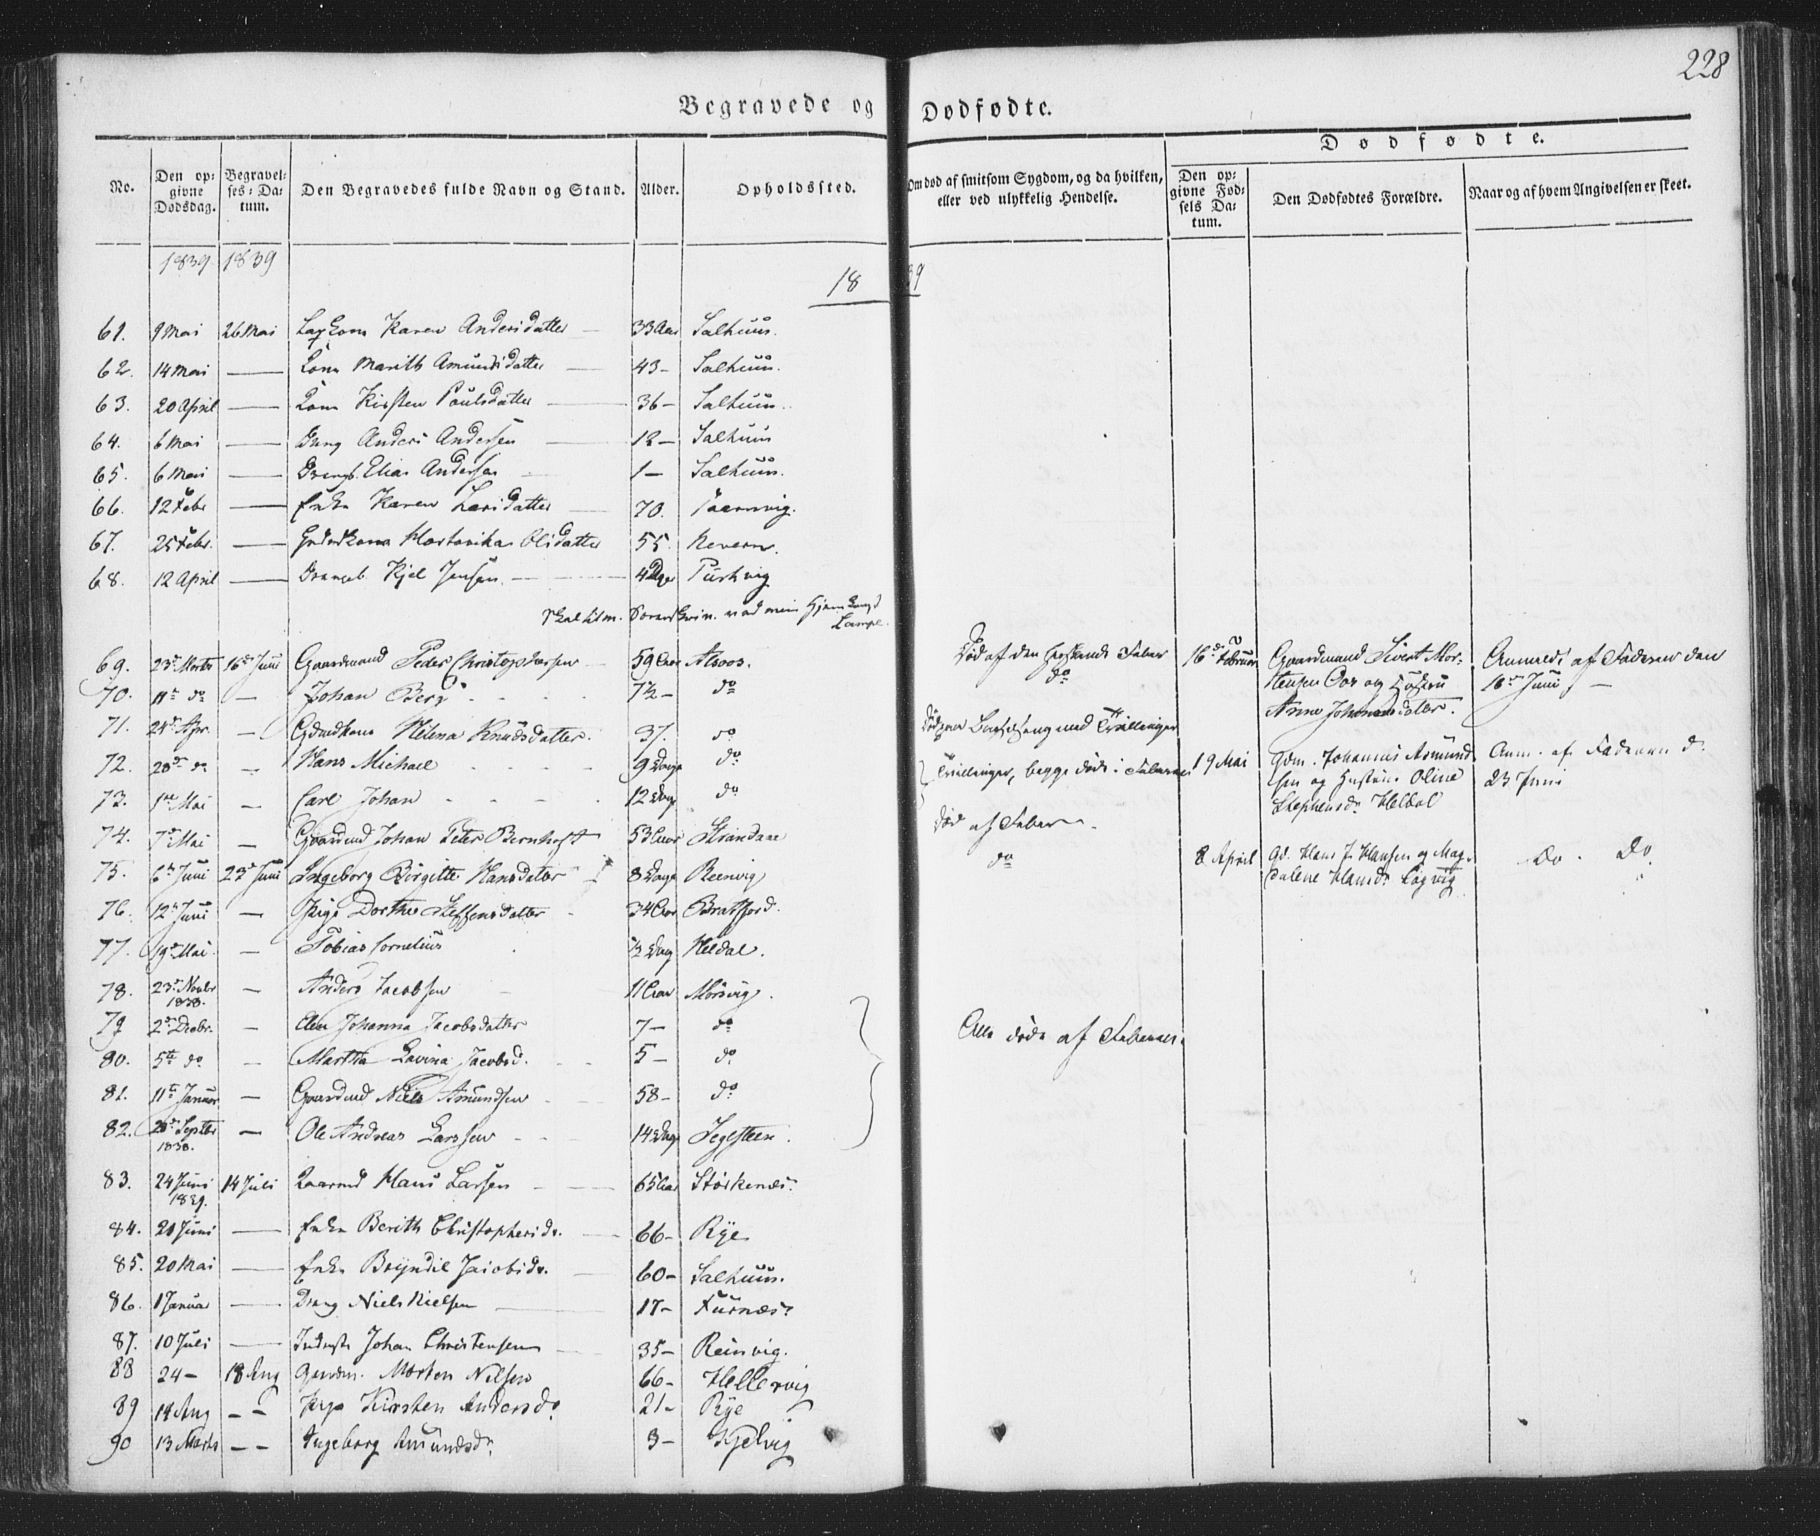 228
Begravede og Dødfødte.
Dødfødte.
No.
Den opgivne Dødsdag.
Begravelses-Datum.
Den Begravedes fulde Navn og Stand.
Alder.
Opholdssted.
Om død af smitsom Sygdom, og da hvilken, eller ved ulykkelig Hendelse.
Den opgivne Fødsels Datum.
Den Dødfødtes Forældre.
Naar og af hvem Angivelsen er skeet.
1839 1839
1839
61. 9 Mai 26 Mai Karen Andersdatter 33 Aar Salhuus.
62. 14 Mai — Kone Marith Amundsdatter 43 – Salhuus.
63. 20 April — Kone Kirsten Poulsdatter 36 – Salhuus.
64. 6 Mai — Dreng Anders Andersen 12 – Salhuus
65. 6 Mai — Drengb. Elias Andersen 1 – Salhuus.
66. 12 Febr — Enke Karen Larsdatter 70.
67. 25 Febr. — Olsdatter 55.
68. 12 April — Drengeb. Kjel Jensen 4 Dge
69. 23de Marts 16de Juni Gaardmand Peder Christophersen 59 Aar Alsoos. Død af den Feber 16de Februar Gaardmand Sivert Mor-
tensen og Hustru Anne Johannesdatter. Anmeldt af Faderen den 16de Juni
70. 11te do — Johan Berg 7½ – do do
71. 24de Apr. — Helena Knudsdatter. 37. do Død paa Barselseng med Tvillinger
72. 28de do — Hans Michael 9 Dage do Tvillinger, begge døde i Feberen 19 Mai Gdm. Johannes Asmund-
sen og Hustru Oline Stephensdr Heldal Anm. af Faderen d. 23 Juni
73. 1ste Mai — Carl Johan 12 Dage do
74. 7de Mai — Gaardmd Johan Peter Bernhoft 53 Aar Strandaae Død af Feber
75. 6te Juni 23de Juni Ingeborg Birgitte Hansdatter 8 Dage Reinvig do 8 April Gd. Hans J. Hansen og Mag-
dalene Hansdr Do. Do
76. 12te Juni — Pige Dorthe Steffensdatter 34 Aar Bratfjord.
77. 19de Mai — Tobias Cornelius ½ Dag Heldal.
78. 23de Novbr 1838. — Anders Jacobsen 11 Aar Morsvig.
79. 2den Decbr. — Elen Johanna Jacobsdatter 7 – do Alle døde af Feberen.
80. 5te do — Martha Lovina Jacobsd. 5 – do.
81. 11te Januar — Gaardmd Niels Amundsen 58 – do
82. 28de Septbr 1838. — Ole Andreas Larsen 14 Dage Segesteen.
83. 24 Juni 1839. 14 Juli Hans Larsen 65 Aar Storkenæs.
84. 20 Juni — Enke Berith Christophersdr. 66 – Rye
85. 20 Mai — Enke Bryndil Jacobsdr. 60 – Salhuus.
86. 1 Januar — Dreng Niels Nielsen 17 – Furnæs.
87. 10 Juli — Inderste Johan Christensen 35 – Reinvig.
88 24 – 18 Aug Gaardm. Morten Nilsen 66 – Hellervig
89 14 Aug – – Pige Kirsten Andersdr. 21 – Rye
90 13 Marts – – Ingeborg Amundsdr. 3 – Kjelvig